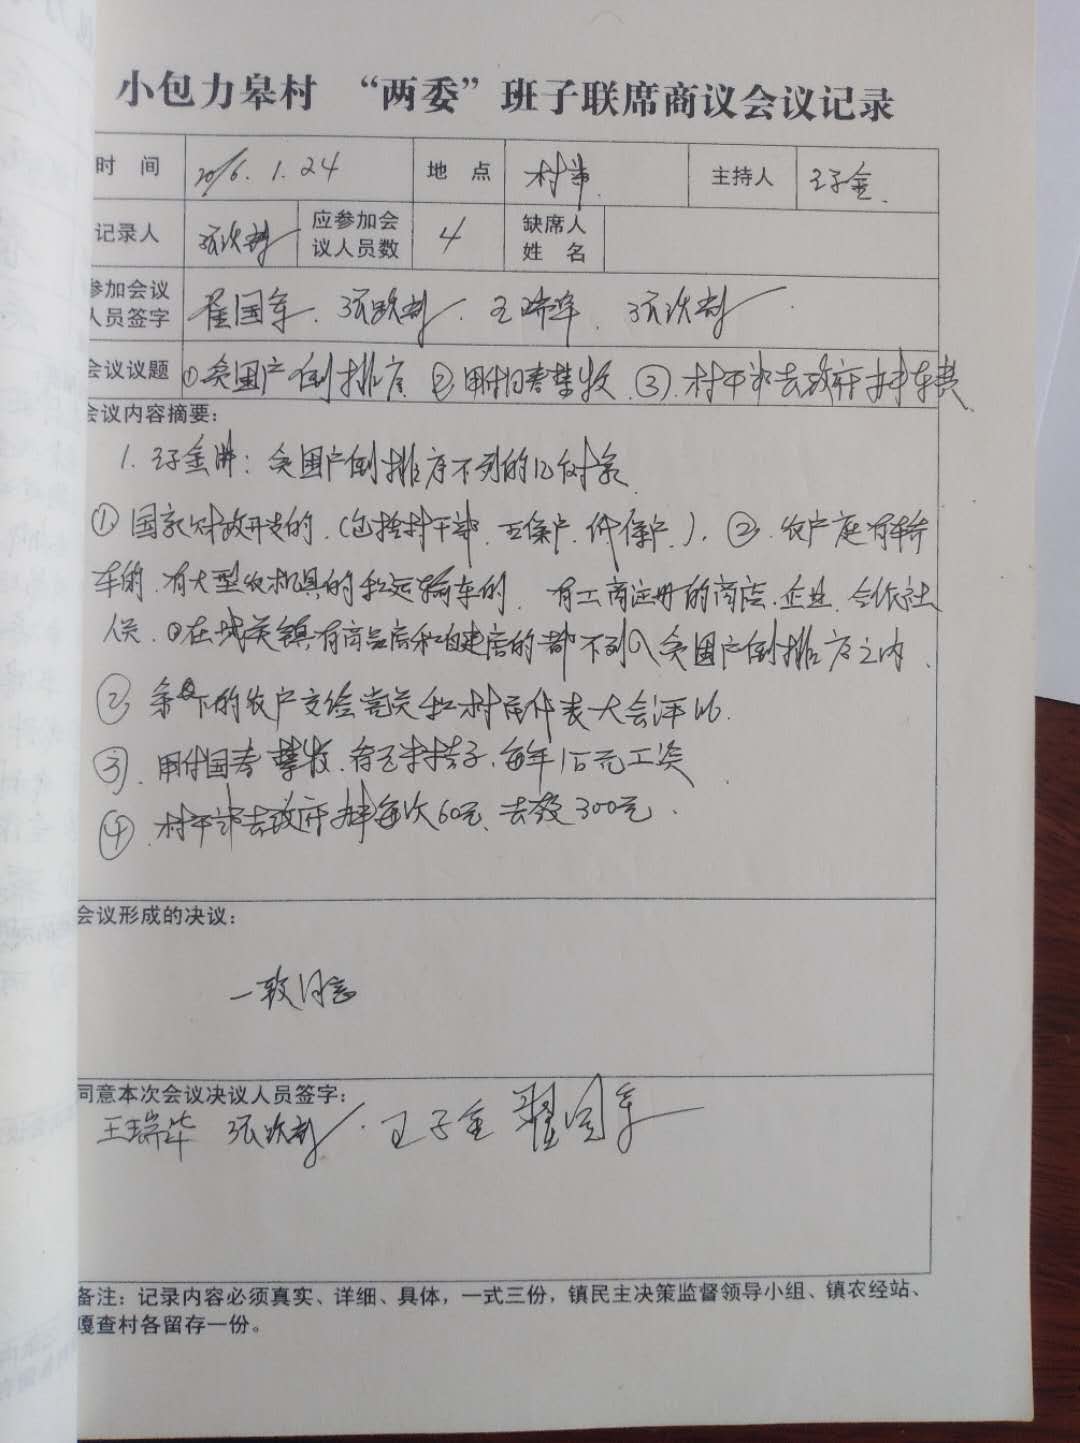 小包力皋村 “两委”班子联席商议会议记录
时 间 2016.1.24 地 点 村部 主持人 王子金.
记录人 应参加会议人员数 4 缺席人姓名
参加会议人员签字 翟国军. 王瑞华.
会议议题 ①贫困户倒排序 ② 禁牧 ③.村干部去政府办事车费
会议内容摘要:
1.王子金讲:贫困户倒排序不列的几种对象
①国家财政开支的.(包括村干部.五保户.低保户.). ②.农户庭有轿
车的.有大型农机具的和运输车的. 有工商注册的商店.企业.合作社
人员.③在城关镇有商品房和自建房的都不列入贫困户倒排序之内.
② 余下的农户交给党员和村民代表大会评比.
③. 禁牧. 每年 元工资
④.村干部去政府办事每次60元、去 300元.
会议形成的决议:
一致同意
同意本次会议决议人员签字:
王瑞华 王子金 翟国军
备注:记录内容必须真实、详细、具体,一式三份,镇民主决策监督领导小组、镇农经站、
嘎查村各留存一份。